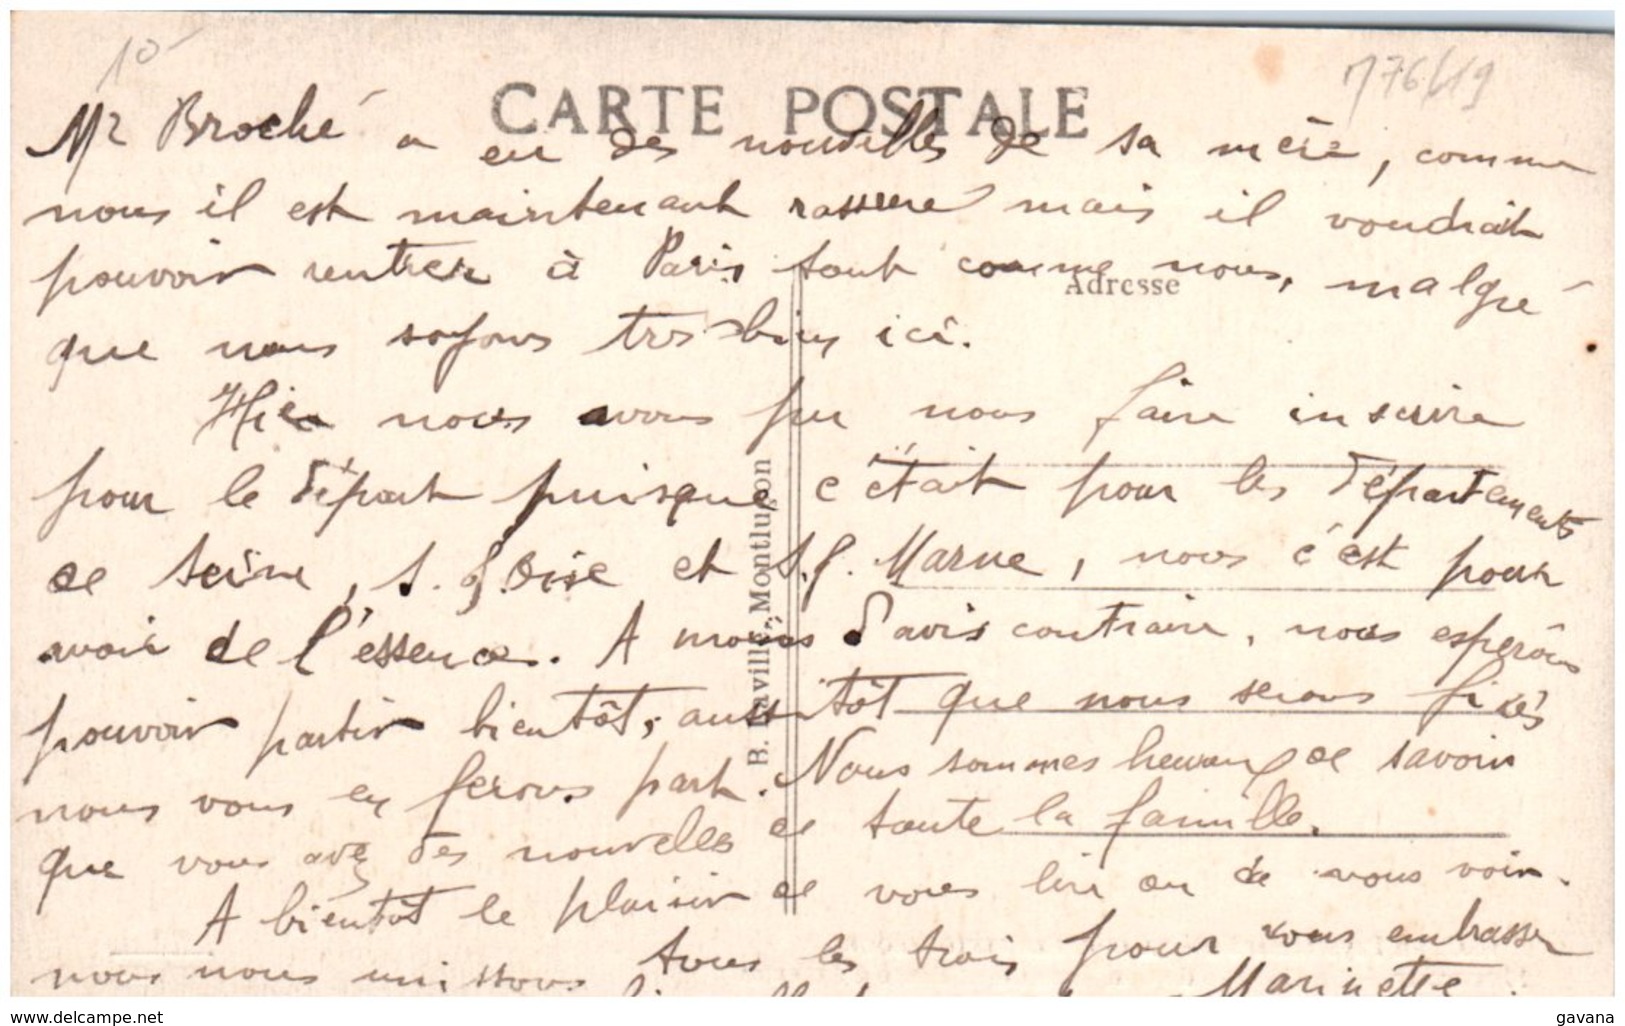 10
776/19
CARTE POSTALE
Mr Broché a eu des nouvelles de sa mère, comme
nous il est maintenant rassuré mais il voudrait
pouvoir rentrer à Paris tout comme nous, malgré
Adresse
que nous soyons très bien ici.
Hier nous avons pu nous faire inscrire
pour le départ puisque c'était pour les départements
de Seine, S. & Oise et S. & Marne, nous c'est pour
avoir de l'essence. A moins d'avis contraire, nous espérons
pouvoir partir bientôt, aussitôt que nous serons fixés
nous vous en ferons part. Nous sommes heureux de savoir
que vous avez des nouvelles de toute la famille.
A bientôt le plaisir de vous lire ou de vous voir.
nous nous unissons tous les trois pour vous embrasser
Marinette
Montluçon
delcampe.net
gavana